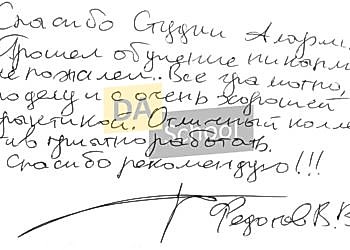 Спасибо Студии Аларм
Прошел обучение ни капли
не пожалел.. Все грамотно,
по делу и с очень хорошей
практикой. Отличный колле
тив приятно работать.
Спасибо рекомендую!!!
Федотов В.В
DA
School